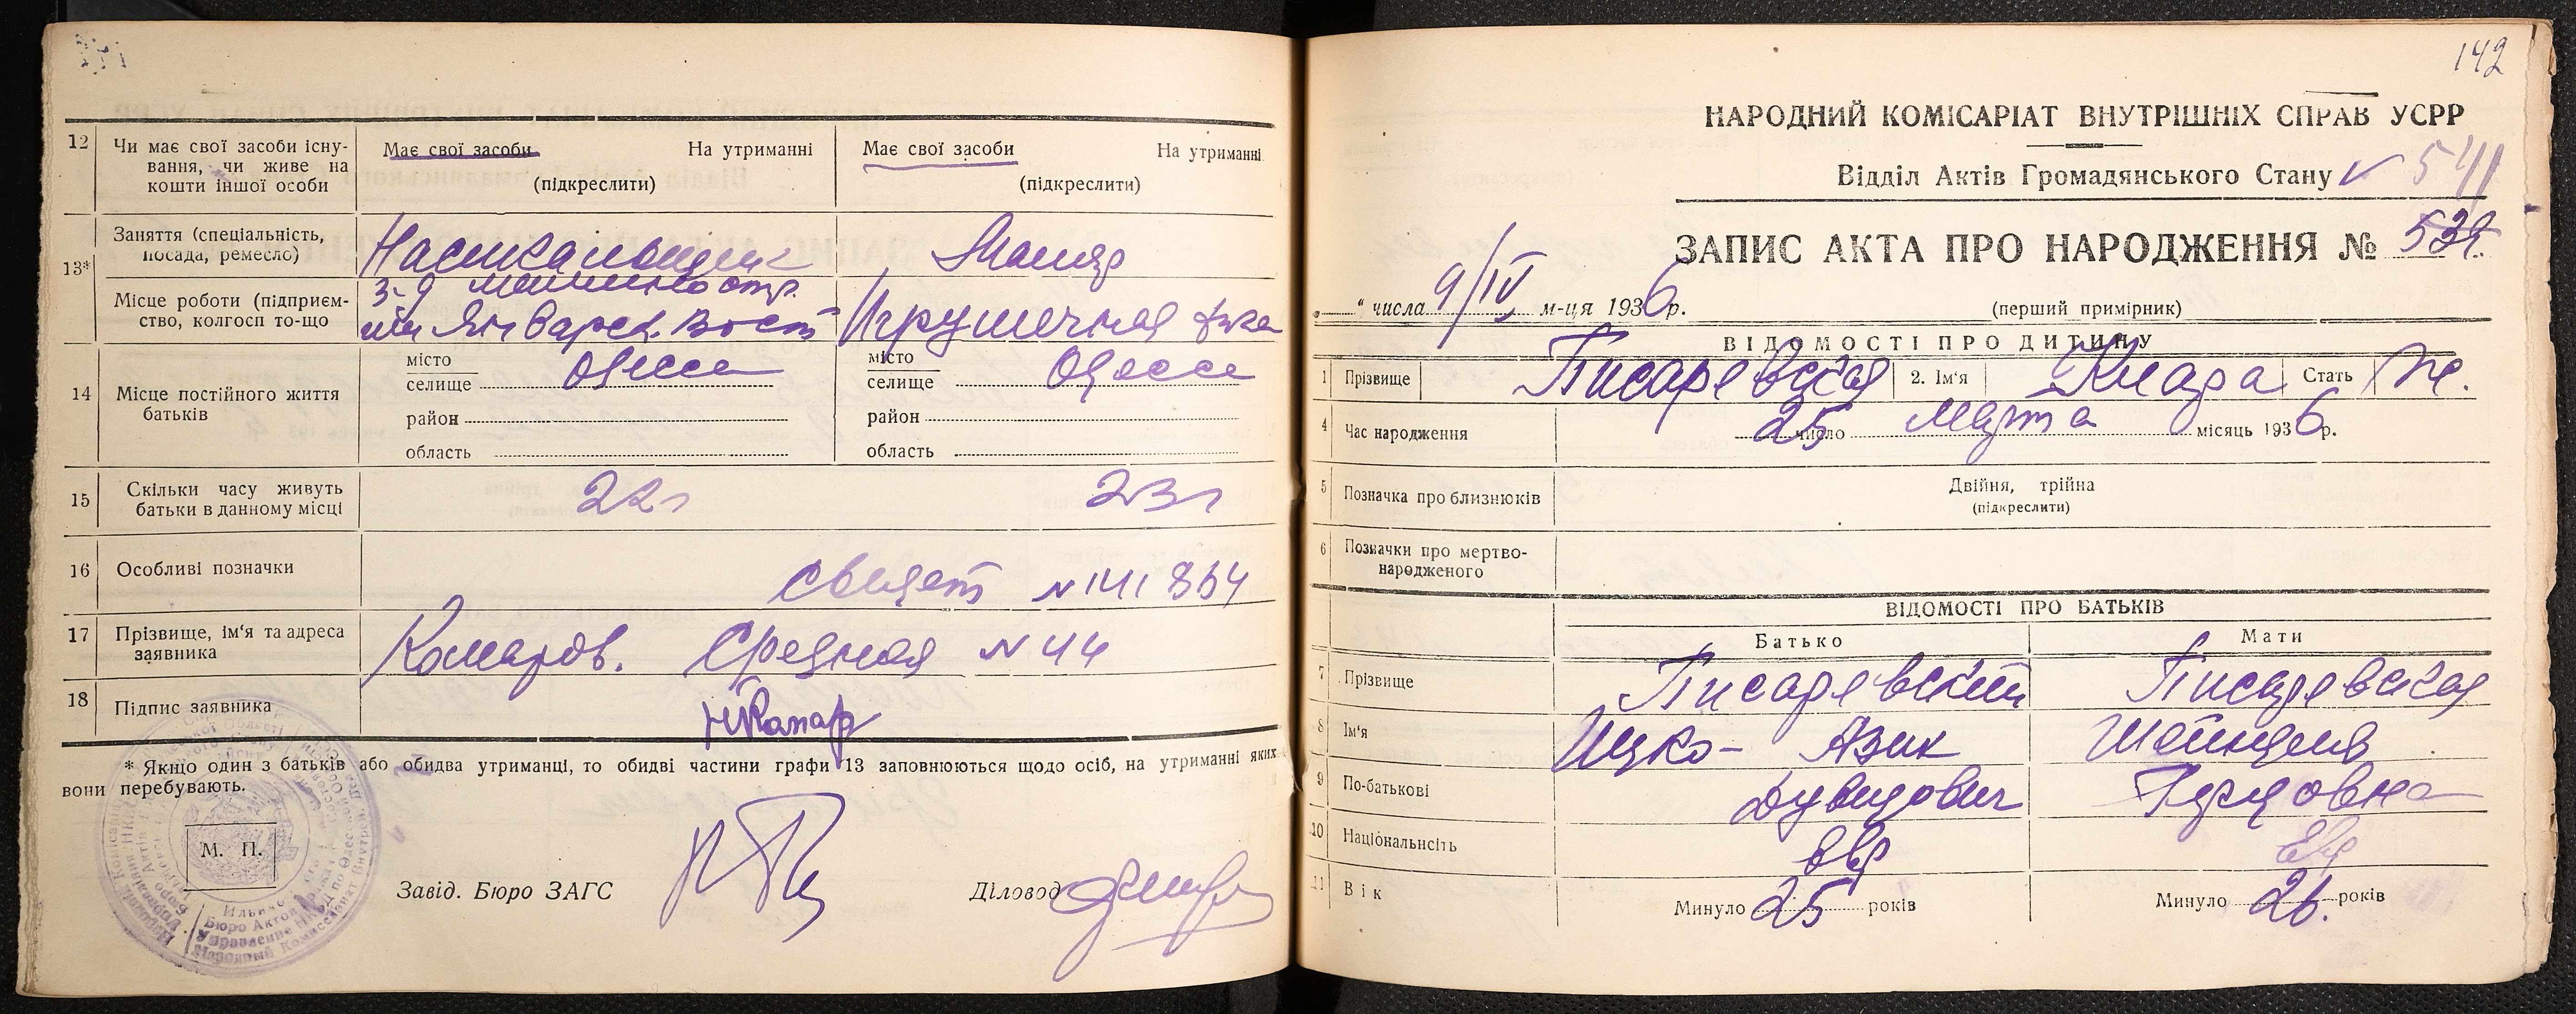 12 Чи має свої засоби існу-
вання, чи живе на
кошти іншої особи
Має свої засоби На утриманні
(підкреслити)
Має свої засоби На утриманні
(підкреслити)
13*
Заняття (спеціальність,
посада, ремесло)
Насикальщик
Маляр
Місце роботи (підприєм-
ство, колгосп то-що
з-д
им Январск. Восст
Игрушечная ф-ка
14 Місце постійного життя
батьків
місто
селище Одесса
район
область
місто
селище Одесса
район
область
15 Скільки часу живуть
батьки в данному місці
22 г
23 г
16 Особливі позначки
свидет №
17 Прізвище, ім'я та адреса
заявника
Комаров. Средная № 44
18 Підпис заявника
НКомар
* Якщо один з батьків або обидва утриманці, то обидві частини графи 13 заповнюються щодо осіб, на утриманні яких
вони перебувають.
М. П.
Завід. Бюро ЗАГС
Діловод
142
НАРОДНИЙ КОМІСАРІАТ ВНУТРІШНІХ СПРАВ УСРР
Відділ Актів Громадянського Стану
541
ЗАПИС АКТА ПРО НАРОДЖЕННЯ № 539.
" числа 9/IV м-ця 1936 р.
(перший примірник)
ВІДОМОСТІ ПРО ДИТИНУ
1 Прізвище Писаревская 2. Ім'я Клара Стать Ж.
4 Час народження 25 число Марта місяць 1936 р.
5 Позначка про близнюків
Двійня, трійна
(підкреслити)
6 Позначки про мертво-
народженого
ВІДОМОСТІ ПРО БАТЬКІВ
Батько Мати
7 Прізвище Писаревский Писаревская
8 Ім'я Ицко- Азик Шейндля
9 По-батькові Дувидович Герцовна
10 Національність евр Евр
11 Вік Минуло 25 років Минуло 26. років